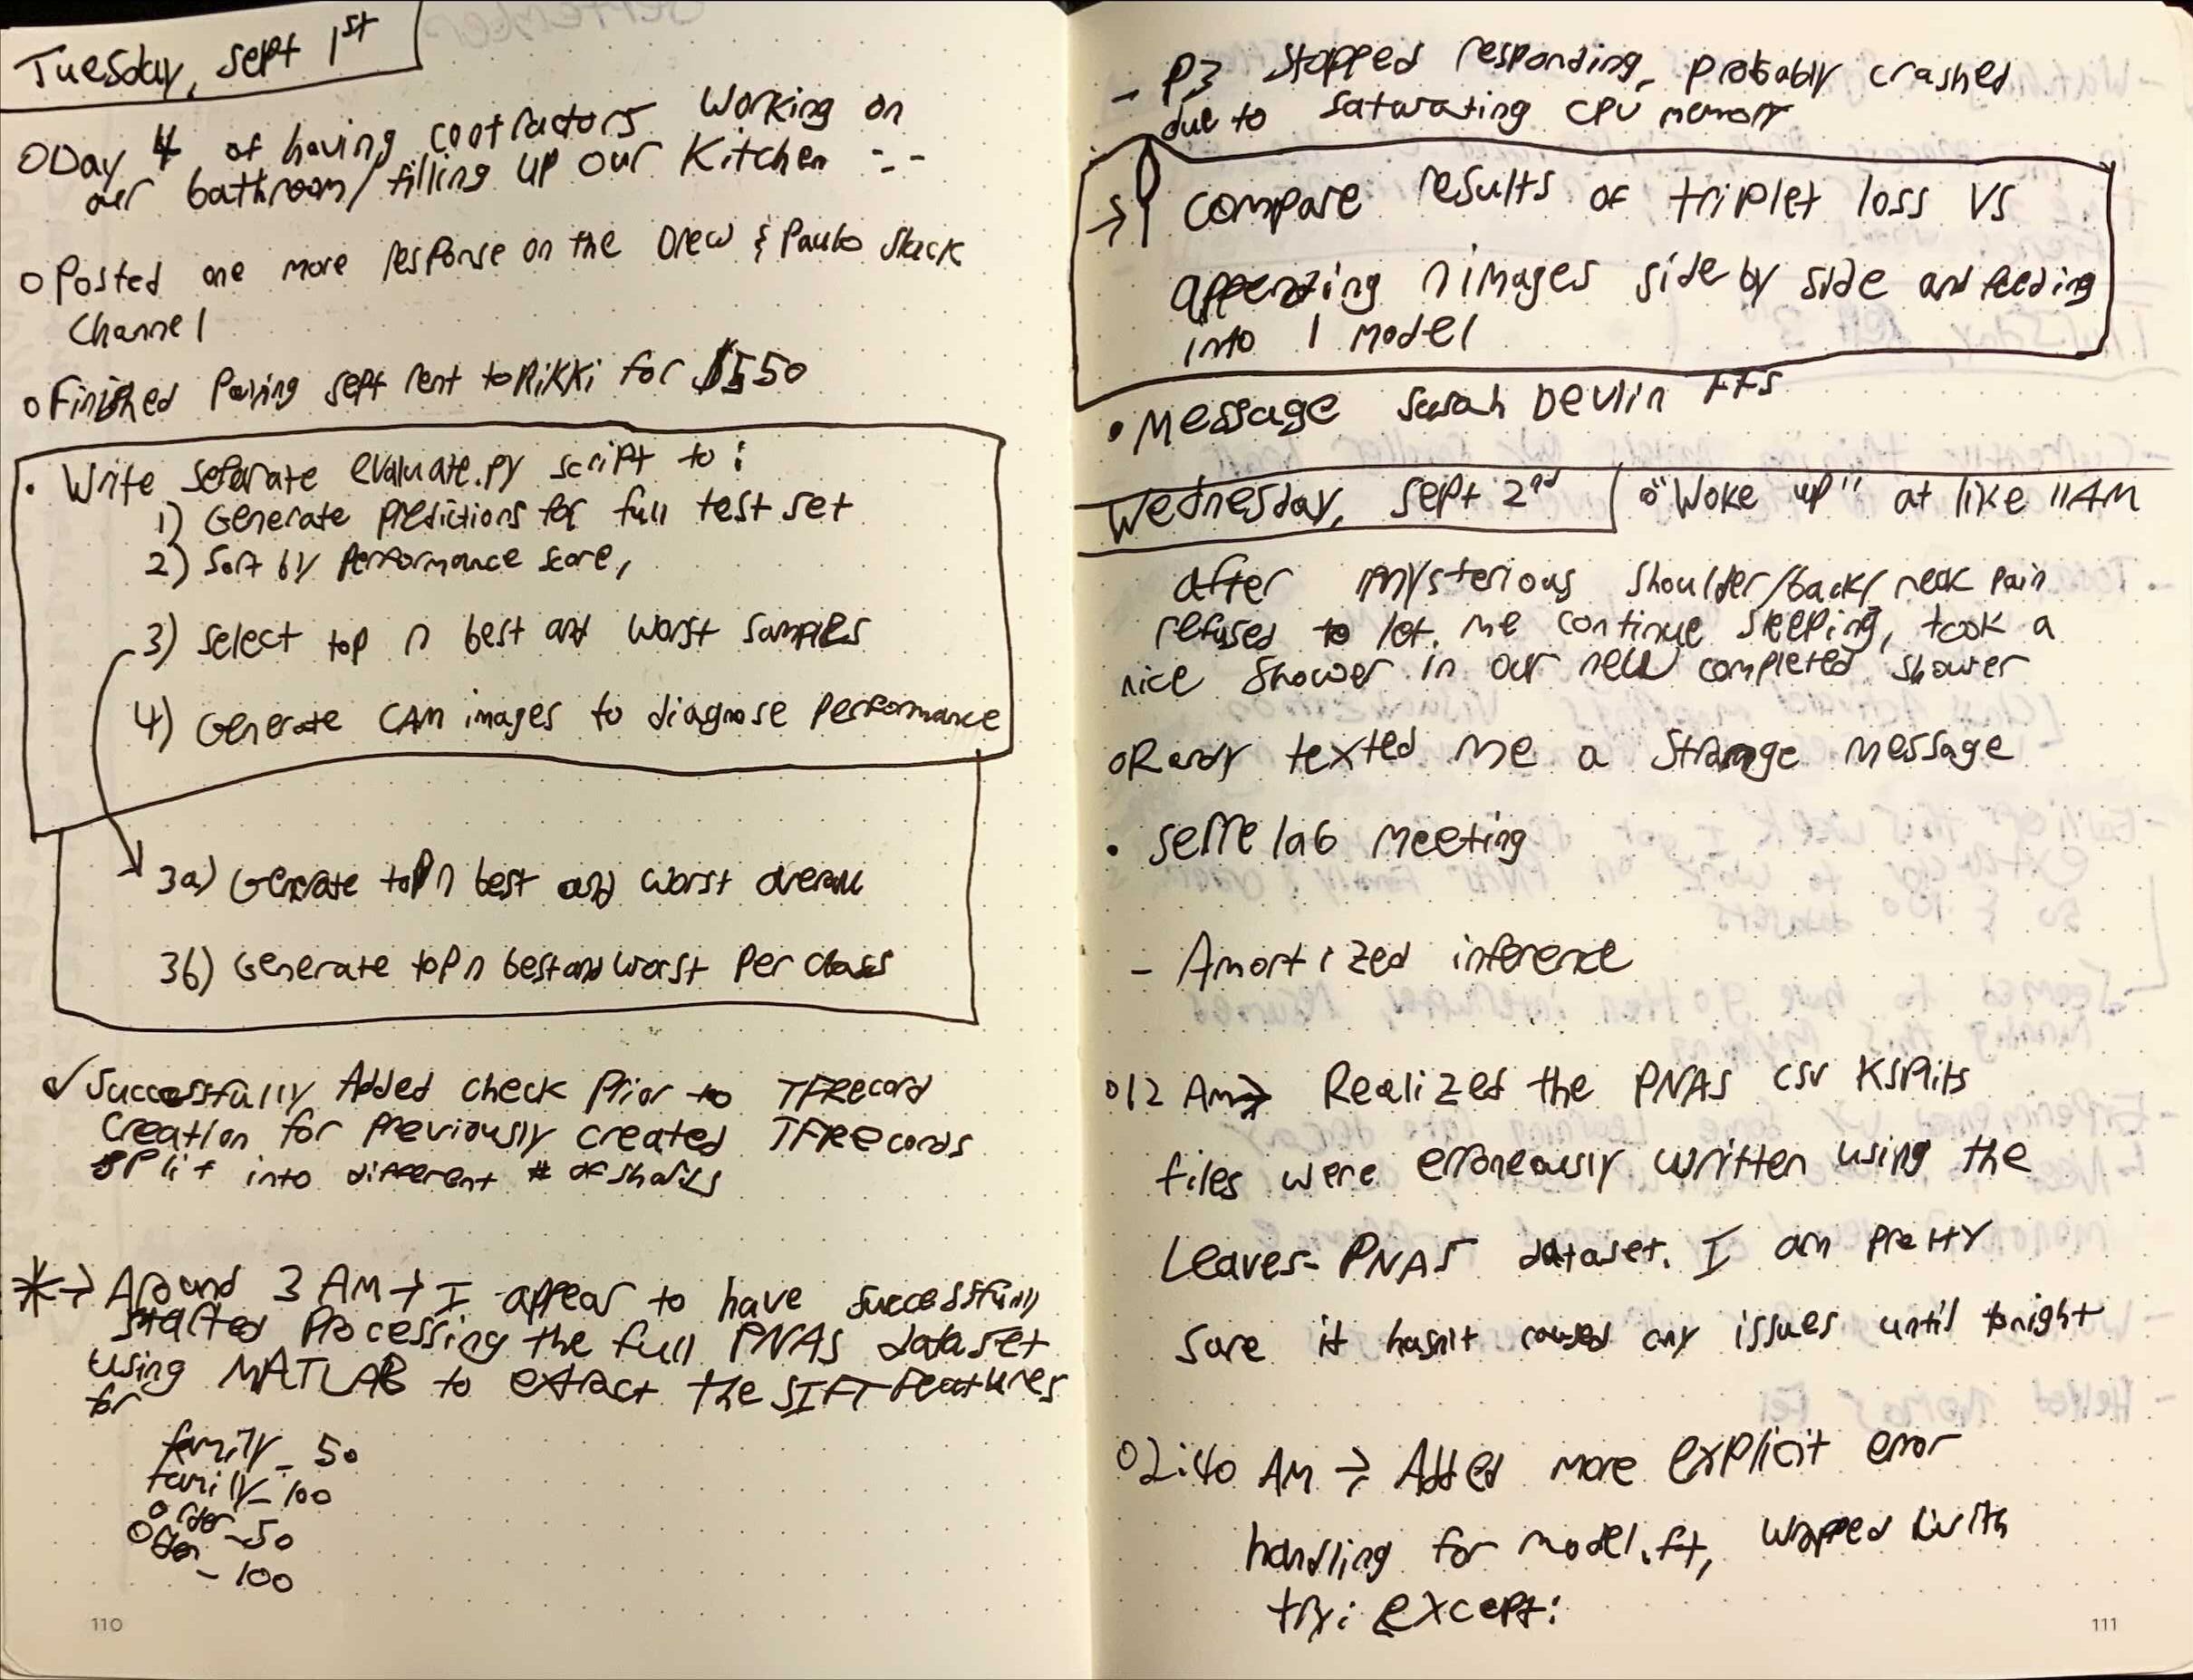 Tuesday, Sept 1st
o Day 4 of having contractors working on
our bathroom/filling up our kitchen :--
o Posted one more response on the Drew & Paulo Slack
Channel
o Finished Paying Sept rent to Rikki for $550
• Write Separate evaluate.py script to:
1) Generate predictions for full test set
2) Sort by performance score,
3) Select top n best and worst samples
4) Generate CAM images to diagnose performance
3a) Generate top n best and worst overall
3b) Generate top n best and worst per class
✓ Successfully Added check Prior to TFRecord
Creation for previously created TFRecords
split into different # of shards
*→ Around 3 AM → I appear to have successfully
started Processing the full PNAS dataset
using MATLAB to extract the SIFT Features
for
family_50
family_100
order_50
order_100
110
- P3 Stopped responding, probably crashed
due to saturating CPU memory
→ Compare results of triplet loss vs
appending n images side by side and feeding
into 1 model
• Message Sarah Devlin FFS
Wednesday, Sept 2nd
o "Woke up" at like 11AM
after mysterious shoulder/back/neck pain
refused to let me continue sleeping, took a
nice Shower in our new completed shower
o Randy texted me a strange message
• Serre lab meeting
- Amortized inference
o 12 AM → Realized the PNAS csv Ksplits
files were erroneously written using the
Leaves-PNAS dataset. I am pretty
sure it hasn't caused any issues until tonight
o 2:40 AM → Added more explicit error
handling for model.fit, wrapped with
try: except:
111